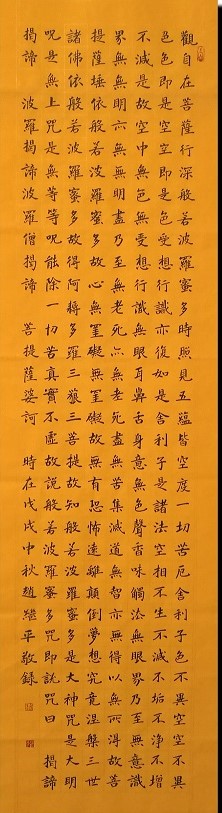 觀自在菩薩行深般若波羅蜜多時照見五蘊皆空度一切苦厄舍利子色不異空空不異
色色即是空空即是色受想行識亦復如是舍利子是諸法空相不生不滅不垢不淨不增
不減是故空中無色無受想行識無眼耳鼻舌身意無色聲香味觸法無眼界乃至無意識
界無無明亦無無明盡乃至無老死亦無老死盡無苦集滅道無智亦無得以無所得故菩
提薩埵依般若波羅蜜多故心無罣礙無罣礙故無有恐怖遠離顛倒夢想究竟涅槃三世
諸佛依般若波羅蜜多故得阿耨多羅三藐三菩提故知般若波羅蜜多是大神呪是大明
呪是無上呪是無等等呪能除一切苦真實不虛故說般若波羅蜜多呪即說呪曰 揭諦
揭諦 波羅揭諦 波羅僧揭諦 菩提薩婆訶 時在戊戌中秋趙繼平敬錄